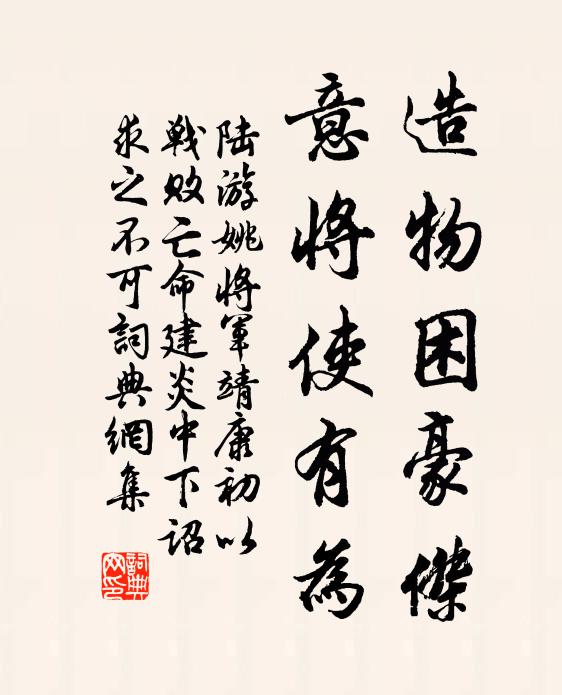 造物困豪傑
意將使有為
陆游姚將軍靖康初以
戰敗亡命建炎中下詔
求之不可詞典網集
詞典网印